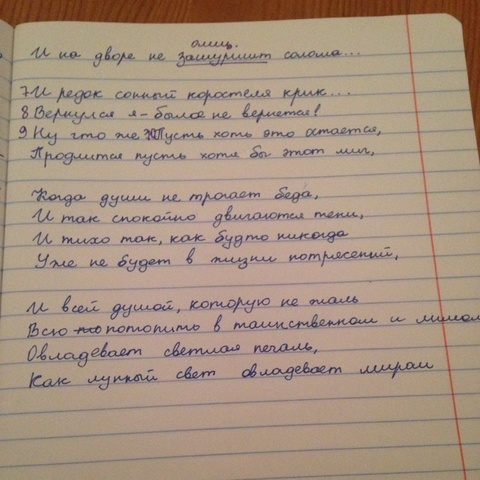 олиц.
И на дворе не зашуршит солома...
7И редок сонный коростеля крик...
8 Вернулся я - былое не вернется!
9 Ну что же 10Пусть хоть это остается,
Продлится пусть хотя бы этот миг,
Когда души не трогает беда,
И так спокойно двигаются тени,
И тихо так, как будто никогда
Уже не будет в жизни потрясений,
И всей душой, которую не жаль
Всю потопить в таинственном и милом
Овладевает светлая печаль,
Как лунный свет овладевает миром